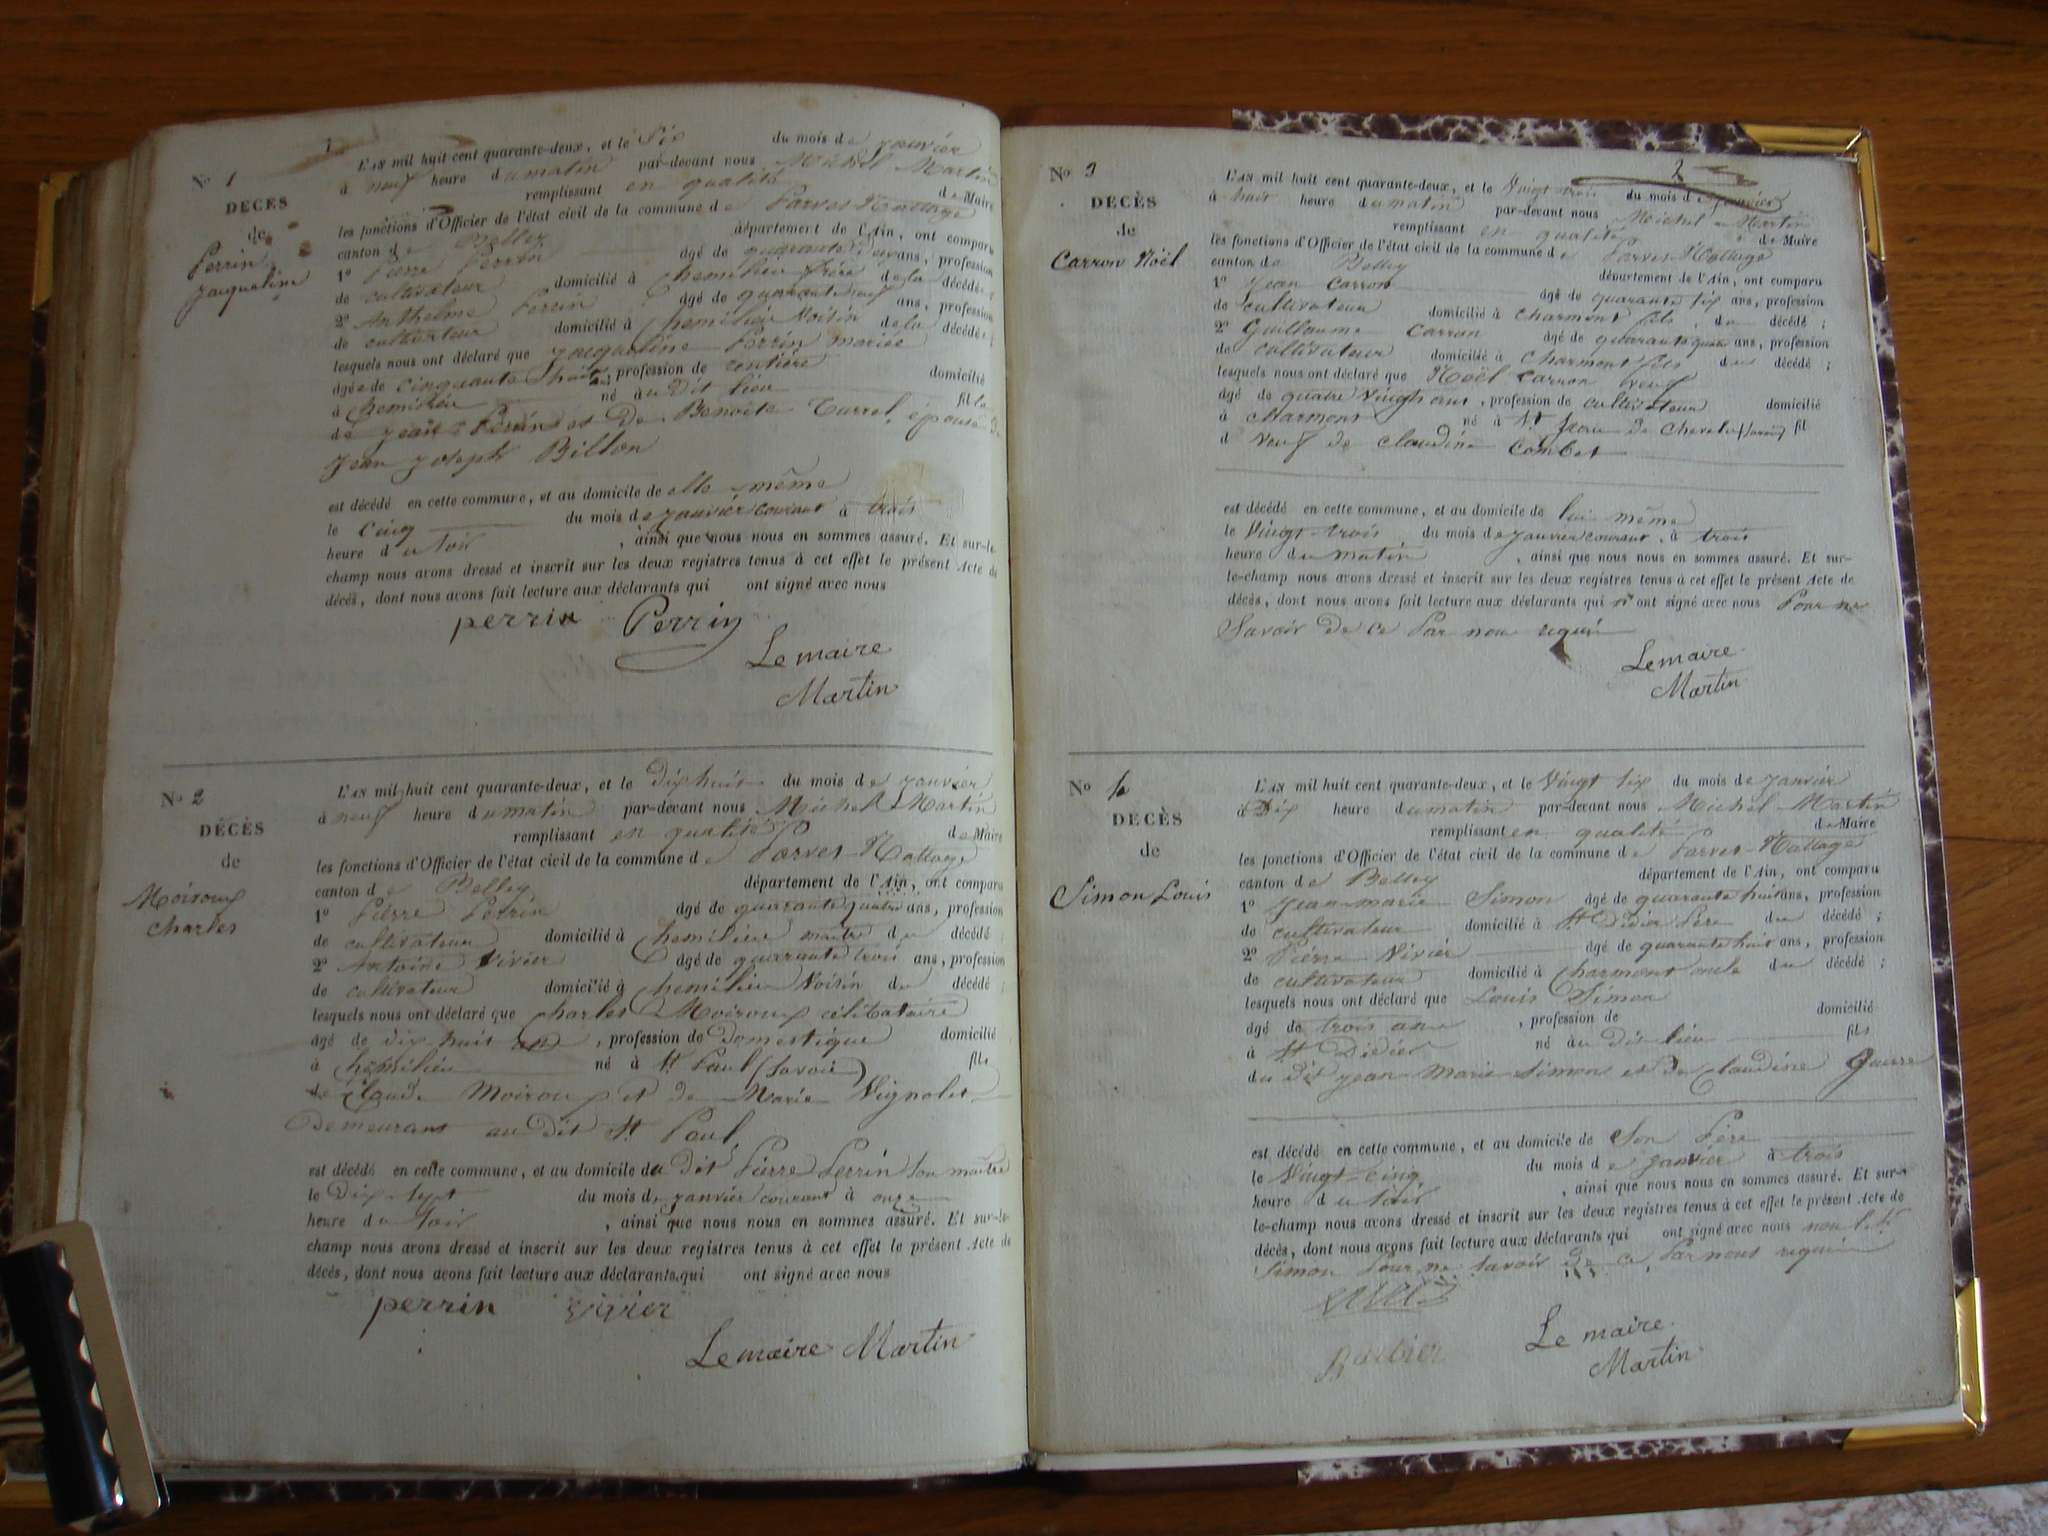 1
No 1
DÉCÈS
de
Perrin
jacqueline
L'AN mil huit cent quarante-deux, et le Six du mois de janvier
à neuf heure du matin par-devant nous Michel Martin
remplissant en qualité de Maire
les fonctions d'Officier de l'état civil de la commune de Parves-Nattage
canton de Belley département de l'Ain, ont comparu
1º Pierre Perrin âgé de quarante ans, profession
de cultivateur domicilié à Chemilieu frère de la décédée ;
2º Anthelme Perrin âgé de quarante neuf ans, profession
de cultivateur domicilié à Chemilieu Voisin de la décédée ;
lesquels nous ont déclaré que jacqueline Perrin mariée
âgée de cinquante huit ans, profession de rentière domicilié
à Chemilieu né au dit lieu fille
de jean Perrin et de Benoite Turrel, épouse de
jean joseph Billon
est décédé en cette commune, et au domicile de elle même
le Cinq du mois de janvier courant à trois
heure du soir , ainsi que nous nous en sommes assuré. Et sur-le-
champ nous avons dressé et inscrit sur les deux registres tenus à cet effet le présent Acte de
décès, dont nous avons fait lecture aux déclarants qui ont signé avec nous
perrin Perrin
Le maire
Martin
No 2
DÉCÈS
de
Moiroux
Charles
L'AN mil huit cent quarante-deux, et le Dix huit du mois de janvier
à neuf heure du matin par-devant nous Michel Martin
remplissant en qualité de Maire
les fonctions d'Officier de l'état civil de la commune de Parves-Nattage
canton de Belley département de l'Ain, ont comparu
1º Pierre Perrin âgé de quarante quatre ans, profession
de cultivateur domicilié à Chemilieu maître du décédé ;
2º Antoine Vivier âgé de quarante trois ans, profession
de cultivateur domicilié à Chemilieu Voisin du décédé ;
lesquels nous ont déclaré que Charles Moiroux célibataire
âgé de dix huit ans , profession de Domestique domicilié
à Chemilieu né à St Paul (Savoie) fils
de Claude Moiroux et de Marie Vignolet
Demeurant au dit St Paul,
est décédé en cette commune, et au domicile du dit Pierre Perrin son maître
le Dix-sept du mois de janvier courant à onze
heure du soir , ainsi que nous nous en sommes assuré. Et sur-le-
champ nous avons dressé et inscrit sur les deux registres tenus à cet effet le présent Acte de
décès, dont nous avons fait lecture aux déclarants qui ont signé avec nous
perrin vivier
Le maire Martin
2
No 3
DÉCÈS
de
Carron Noël
L'AN mil huit cent quarante-deux, et le Vingt-trois du mois de janvier
à huit heure du matin par-devant nous Michel Martin
remplissant en qualité de Maire
les fonctions d'Officier de l'état civil de la commune de Parves-Nattage
canton de Belley département de l'Ain, ont comparu
1º jean Carron âgé de quarante six ans, profession
de cultivateur domicilié à Charmont fils , du décédé ;
2º Guillaume Carron âgé de quarante quatre ans, profession
de cultivateur domicilié à Charmont fils du décédé ;
lesquels nous ont déclaré que Noël Carron veuf
âgé de quatre Vingts ans , profession de cultivateur domicilié
à Charmont né à St jean de Chevelu (Savoie) fil
d veuf de Claudine Combet
est décédé en cette commune, et au domicile de lui même
le Vingt-trois du mois de janvier courant, à trois
heure du matin , ainsi que nous nous en sommes assuré. Et sur-
le-champ nous avons dressé et inscrit sur les deux registres tenus à cet effet le présent Acte de
décès, dont nous avons fait lecture aux déclarants qui n'ont signé avec nous Pour ne
Savoir de ce Par nous requis
Le maire
Martin
No 4
DÉCÈS
de
Simon Louis
L'AN mil huit cent quarante-deux, et le Vingt six du mois de janvier
à Dix heure du matin par-devant nous Michel Martin
remplissant en qualité de Maire
les fonctions d'Officier de l'état civil de la commune de Parves-Nattage
canton de Belley département de l'Ain, ont comparu
1º jean-marie Simon âgé de quarante huit ans, profession
de cultivateur domicilié à St Didier Père du décédé ;
2º Pierre Vivier âgé de quarante huit ans, profession
de cultivateur domicilié à Charmont oncle du décédé ;
lesquels nous ont déclaré que Louis Simon
âgé de trois ans , profession de domicilié
à St Didier né au dit lieu fils
du dit jean Marie Simon et de Claudine Guerre
est décédé en cette commune, et au domicile de Son Père
le Vingt-Cinq du mois de janvier à trois
heure du soir , ainsi que nous nous en sommes assuré. Et sur-
le-champ nous avons dressé et inscrit sur les deux registres tenus à cet effet le présent Acte de
décès, dont nous avons fait lecture aux déclarants qui ont signé avec nous non
Simon Pour ne savoir de ce Par nous requis
Le maire
Martin